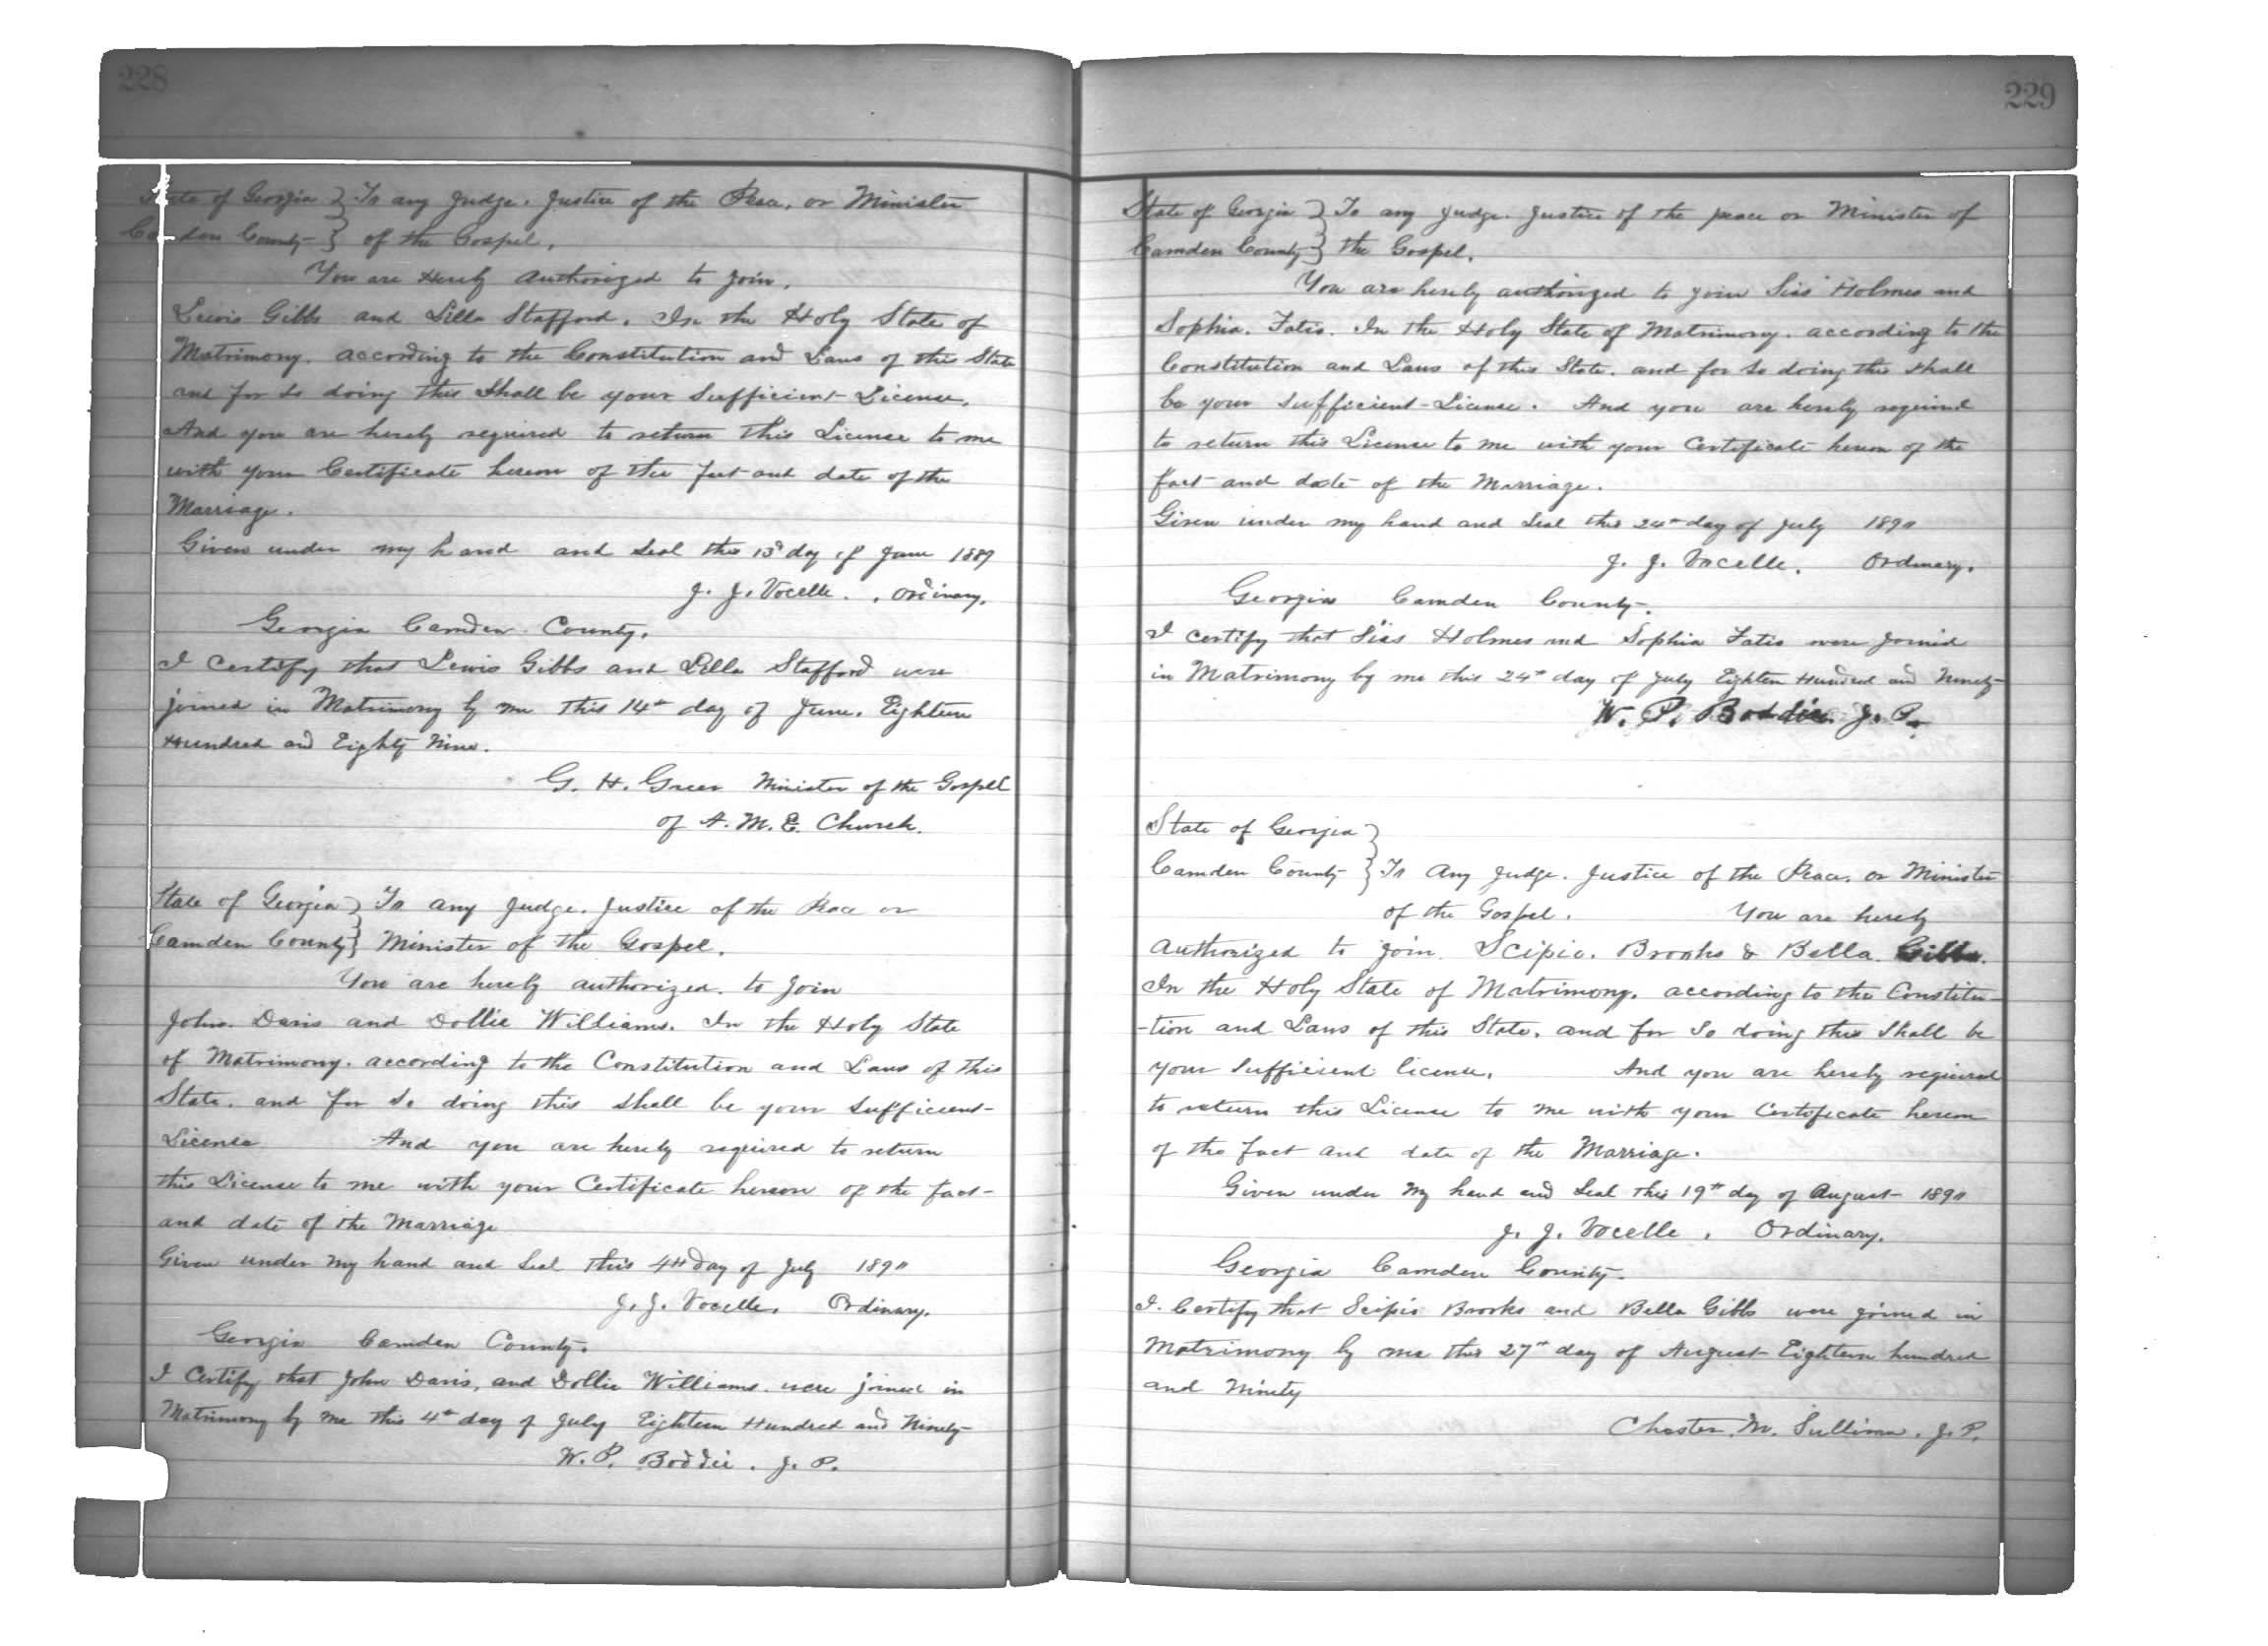 228
State of Georgia } To any Judge. Justice of the Peace, or Minister
Camden County } of the Gospel.
You are Hereby authorized to join,
Lewis Gibbs and Lilla Stafford. In the Holy State of
Matrimony. according to the Constitution and Laws of this State
and for so doing this shall be your Sufficient License.
And you are hereby required to return this License to me
with your Certificate hereon of the fact and date of the
Marriage.
Given under my hand and Seal this 13th day of June 1889
J. J. Vocelle. Ordinary.
Georgia Camden County.
I Certify that Lewis Gibbs and Lilla Stafford were
joined in Matrimony by me this 14th day of June. Eighteen
Hundred and Eighty Nine.
G. H. Green Minister of the Gospel
of A. M. E. Church.
State of Georgia } To any Judge. Justice of the Peace or
Camden County } Minister of the Gospel.
You are hereby authorized. to join
John. Davis and Dollie Williams. In the Holy State
of Matrimony. according to the Constitution and Laws of this
State. and for So doing this shall be your sufficient-
License And you are hereby required to return
this License to me with your Certificate hereon of the fact-
and date of the Marriage
Given under my hand and Seal this 4th day of July 1890
J. J. Vocelle. Ordinary.
Georgia Camden County.
I Certify that John Davis, and Dollie Williams. were joined in
Matrimony by me this 4th day of July Eighteen Hundred and Ninety-
W. P. Boddie. J. P.
229
State of Georgia } To any Judge. Justice of the peace or Minister of
Camden County } the Gospel.
You are hereby authorized to join Sias Holmes and
Sophia. Fatio. In the Holy State of Matrimony. according to the
Constitution and Laws of this State. and for So doing this shall
be your sufficient-License. And you are hereby required
to return this License to me with your Certificate hereon of the
fact and date of the Marriage.
Given under my hand and Seal this 24th day of July 1890
J. J. Vocelle. Ordinary.
Georgia Camden County.
I certify that Sias Holmes and Sophia Fatio were joined
in Matrimony by me this 24th day of July Eighteen Hundred and Ninety-
W. P. Boddie. J. P.
State of Georgia }
Camden County } To Any Judge. Justice of the Peace. or Minister
of the Gospel. You are hereby
authorized to join Scipio. Brooks & Bella. Gibbs.
In the Holy State of Matrimony. according to the Constitu-
-tion and Laws of this State. and for So doing this Shall be
your Sufficient license. And you are hereby required
to return this License to me with your Certificate hereon
of the fact and date of the Marriage.
Given under my hand and Seal this 19th day of August 1890
J. J. Vocelle. Ordinary.
Georgia Camden County.
I. Certify that Scipio Brooks and Bella Gibbs were joined in
Matrimony by me this 27th day of August Eighteen hundred
and Ninety
Chester. M. Sullivan. J. P.